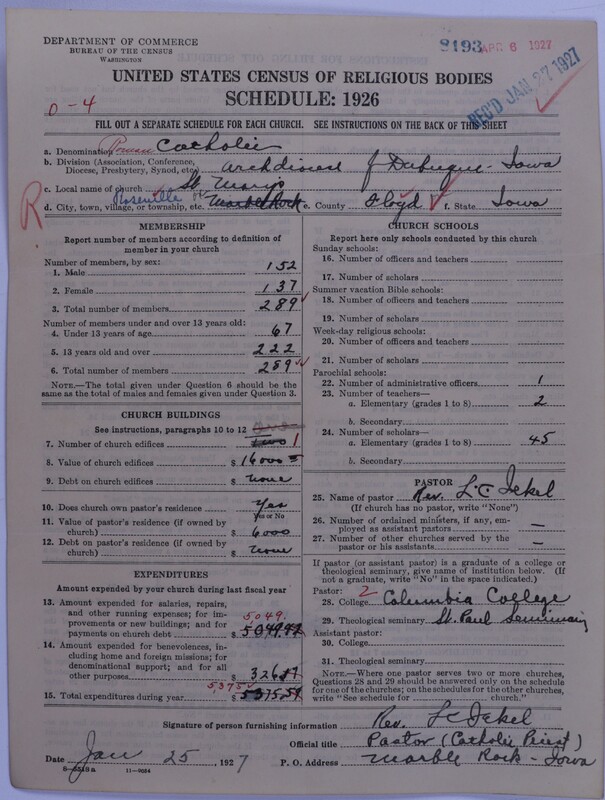 DEPARTMENT OF COMMERCE
BUREAU OF THE CENSUS
WASHINGTON
8193 APR 6 1927
REC'D JAN 27 1927
UNITED STATES CENSUS OF RELIGIOUS BODIES
SCHEDULE: 1926
0-4
FILL OUT A SEPARATE SCHEDULE FOR EACH CHURCH. SEE INSTRUCTIONS ON THE BACK OF THIS SHEET
a. Denomination Roman Catholic
b. Division (Association, Conference, Diocese, Presbytery, Synod, etc.) Archdiocese of Dubuque - Iowa
c. Local name of church St Marys
d. City, town, village, or township, etc. Roseville Marble Rock e. County Floyd f. State Iowa
R
MEMBERSHIP
Report number of members according to definition of
member in your church
Number of members, by sex:
1. Male 152
2. Female 137
3. Total number of members 289
Number of members under and over 13 years old:
4. Under 13 years of age 67
5. 13 years old and over 222
6. Total number of members 289
NOTE.—The total given under Question 6 should be
same as the total of males and females given under Question 3.
CHURCH BUILDINGS
See instructions, paragraphs 10 to 12
7. Number of church edifices two 1
8. Value of church edifices $ 16000
9. Debt on church edifices $ none
10. Does church own pastor's residence Yes
Yes or No
11. Value of pastor's residence (if owned by
church) $ 6000
12. Debt on pastor's residence (if owned by
church) $ none
EXPENDITURES
Amount expended by your church during last fiscal year
13. Amount expended for salaries, repairs,
and other running expenses; for im-
provements or new buildings; and for
payments on church debt 5049. $ 5049.42
14. Amount expended for benevolences,
including home and foreign missions; for
denominational support; and for all
other purposes $ 326.17
15. Total expenditures during year 5375 $ 5375.59
CHURCH SCHOOLS
Report here only schools conducted by this church
Sunday schools:
16. Number of officers and teachers
17. Number of scholars
Summer vacation Bible schools:
18. Number of officers and teachers
19. Number of scholars
Week-day religious schools:
20. Number of officers and teachers
21. Number of scholars
Parochial schools:
22. Number of administrative officers 1
23. Number of teachers—
a. Elementary (grades 1 to 8) 2
b. Secondary
24. Number of scholars—
a. Elementary (grades 1 to 8) 45
b. Secondary
PASTOR
25. Name of pastor Rev. L C Jekel
(If church has no pastor, write "None")
26. Number of ordained ministers, if any, em-
ployed as assistant pastors —
27. Number of other churches served by the
pastor or his assistants —
If pastor (or assistant pastor) is a graduate of a college or
theological seminary, give name of institution below. (If
not a graduate, write "No" in the space indicated.)
Pastor: 2
28. College Columbia College
29. Theological seminary St. Paul Seminary
Assistant pastor:
30. College
31. Theological seminary
NOTE.—Where one pastor serves two or more churches,
Questions 28 and 29 should be answered only on the schedule
for one of the churches; on the schedules for the other churches,
write "See schedule for church."
Signature of person furnishing information Rev. L C Jekel
Official title Pastor (Catholic Priest)
Date Jan 25, 1927 P. O. Address Marble Rock - Iowa
8-5518a 11-9024